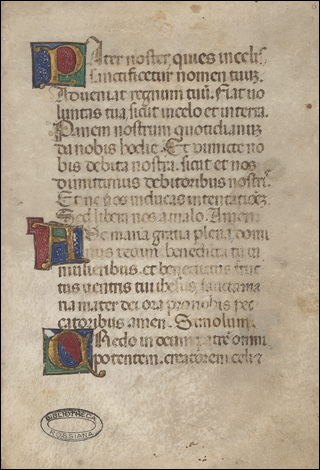 Pater noster qui es in celis
sanctificetur nomen tuuꝫ.
Adveniat regnum tuū. Fiat vo
luntas tua sicut in celo et in terra.
Panem nostrum quotidianuꝫ
da nobis hodie. Et dimicte no
bis debita nostra. sicut et nos
dimittimus debitoribus nostrꝭ.
Et ne nos inducas in tentationeꝫ.
Sed libera nos a malo. Amen
Ave maria gratia plena domi
nus tecum. benedicta tu in
mulieribus. et benedictus fruc
tus ventris tui ihesus. sancta ma
ria mater dei ora pro nobis pec
catoribus amen.
Credo in deum patrē omni
potentem. creatorem celi &
BIBLIOTHECA
ROSSIANA